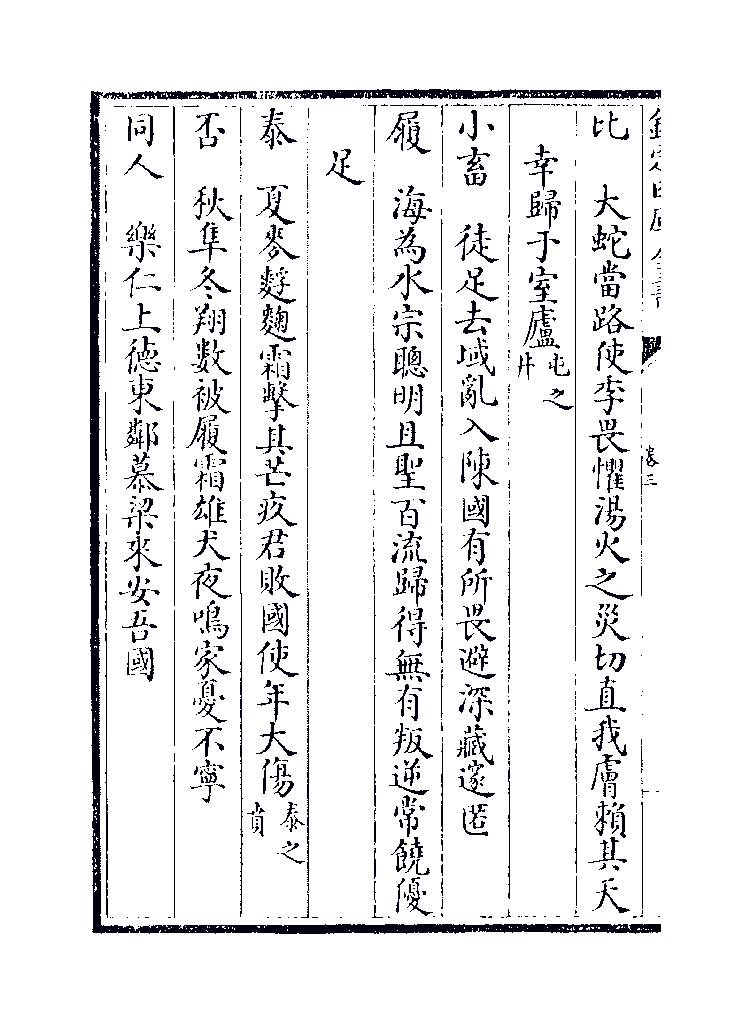 欽定四庫全書
卷三
比　大蛇當路使季畏懼湯火之災切直我膚賴其天
幸歸于室廬屯之井
小畜　徒足去域亂入陳國有所畏避深藏邃匿
履　海為水宗聰明且聖百流歸得無有叛逆常饒優
足
泰　夏麥麩麴霜擊其芒疾君敗國使年大傷泰之賁
否　秋隼冬翔數被履霜雄犬夜鳴家憂不寧
同人　樂仁上徳東鄰慕梁來安吾國